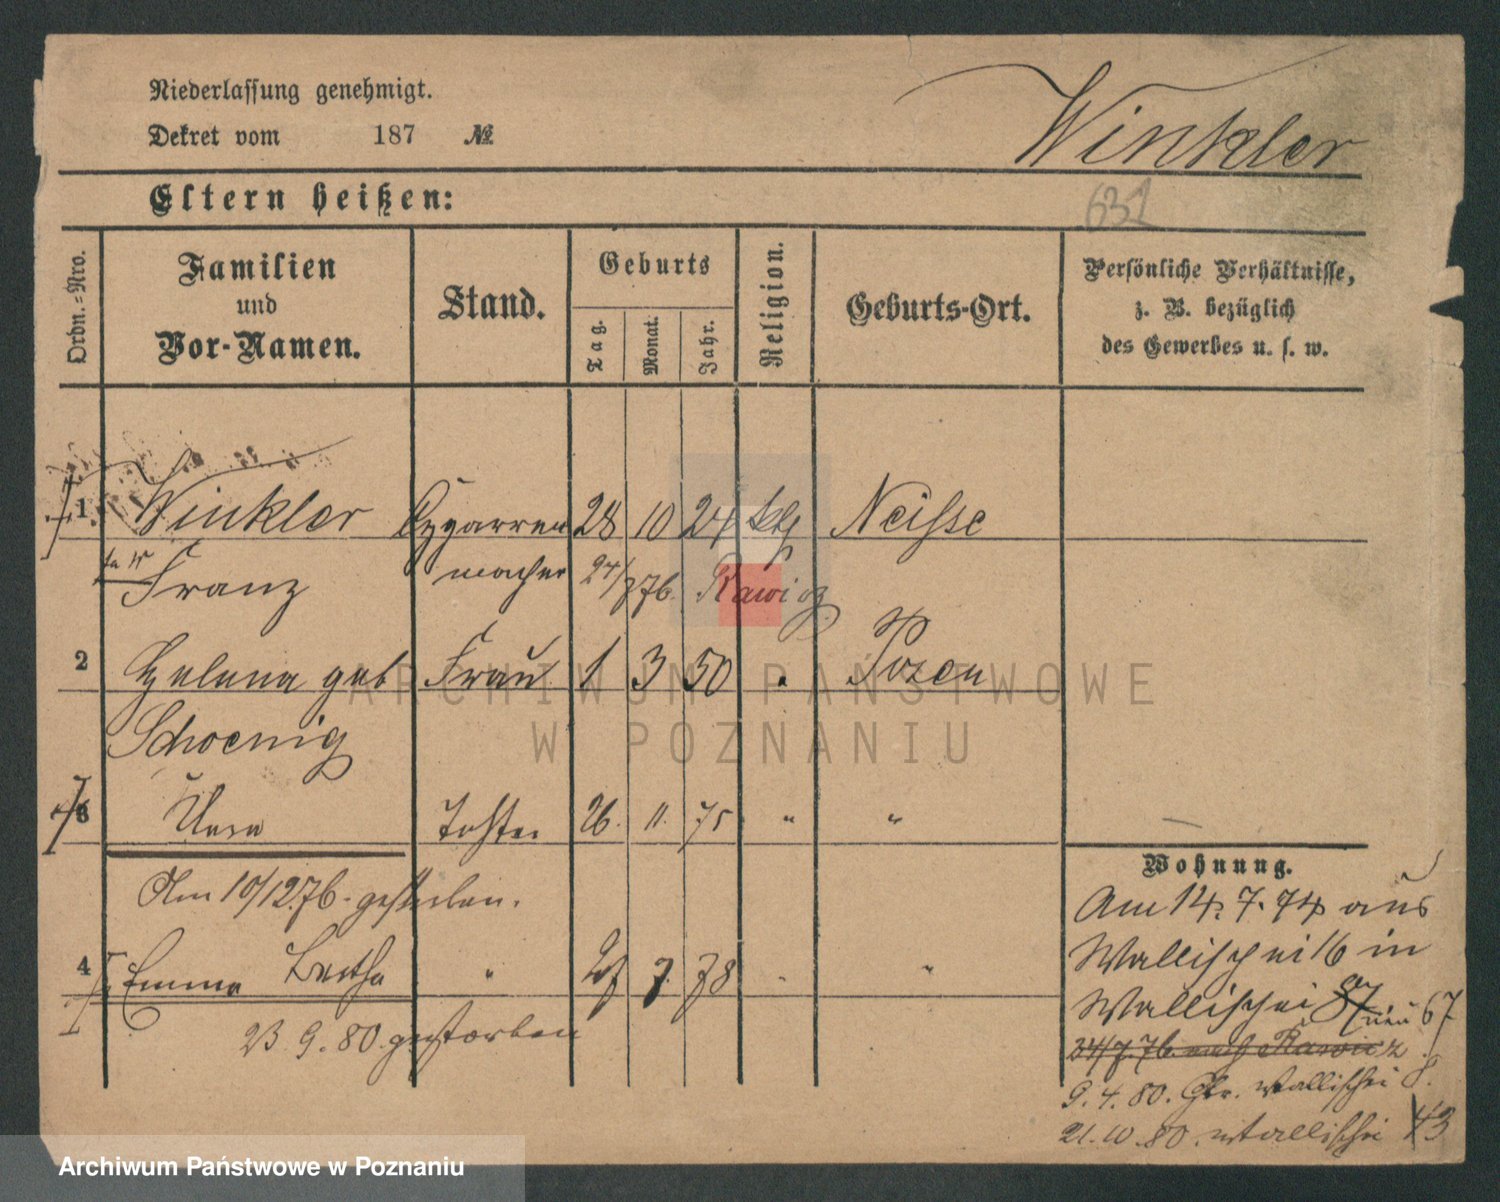 Niederlassung genehmigt.
Dekret vom 187 №
Winkler
Eltern heißen:
631
Ordn.=Nro.
Familien
und
Vor-Namen.
Stand.
Geburts
Tag.
Monat.
Jahr.
Religion.
Geburts-Ort.
Persönliche Verhältnisse,
z. B. bezüglich
des Gewerbes u. s. w.
1 Winkler Cygarren 28 10 24 ktl Neisse
Franz macher 24/7 76. Rawicz
2 Helena geb Frau 1 3 50 " Posen
Schoenig
3 Tochter 26. 11. 75 " "
Am 10/12.76. gestorben.
4 Emma Bertha " 7. 78 " "
23. 9. 80. gestorben
Wohnung.
Am 14. 7. 74 aus
Wallischei 16 in
Wallischei 87 neu 67
24/7. 76. nach Rawicz
9. 4. 80. Gr. Wallischei 8.
21. 10. 80. Wallischei 43
ARCHIWUM PAŃSTWOWE
W POZNANIU
Archiwum Państwowe w Poznaniu